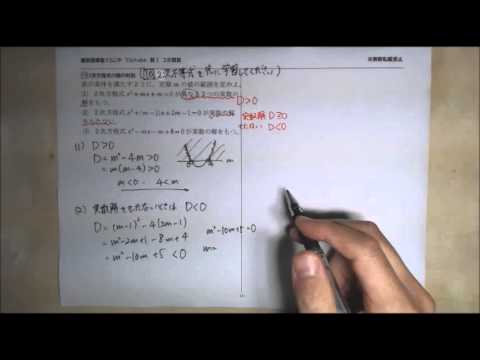 (予習 2次不等式を先に学習してください)
次の条件を満たすように，定数 m の値の範囲を定めよ．
(1) 2次方程式 x²+mx+m=0 が異なる2つの実数の
解をもつ．
(2) 2次方程式 x²+(m-1)x+2m-1=0 が実数の解
をもたない．
(3) 2次方程式 x²-mx-m+8=0 が実数の解をもつ．
D>0
実数解 D≧0
もたない D<0
(1) D>0
D=m²-4m>0
=m(m-4)>0
m<0, 4<m
m
(2) 実数解をもたないときは D<0
D=(m-1)²-4(2m-1)
=m²-2m+1-8m+4
=m²-10m+5<0
m²-10m+5=0
m=